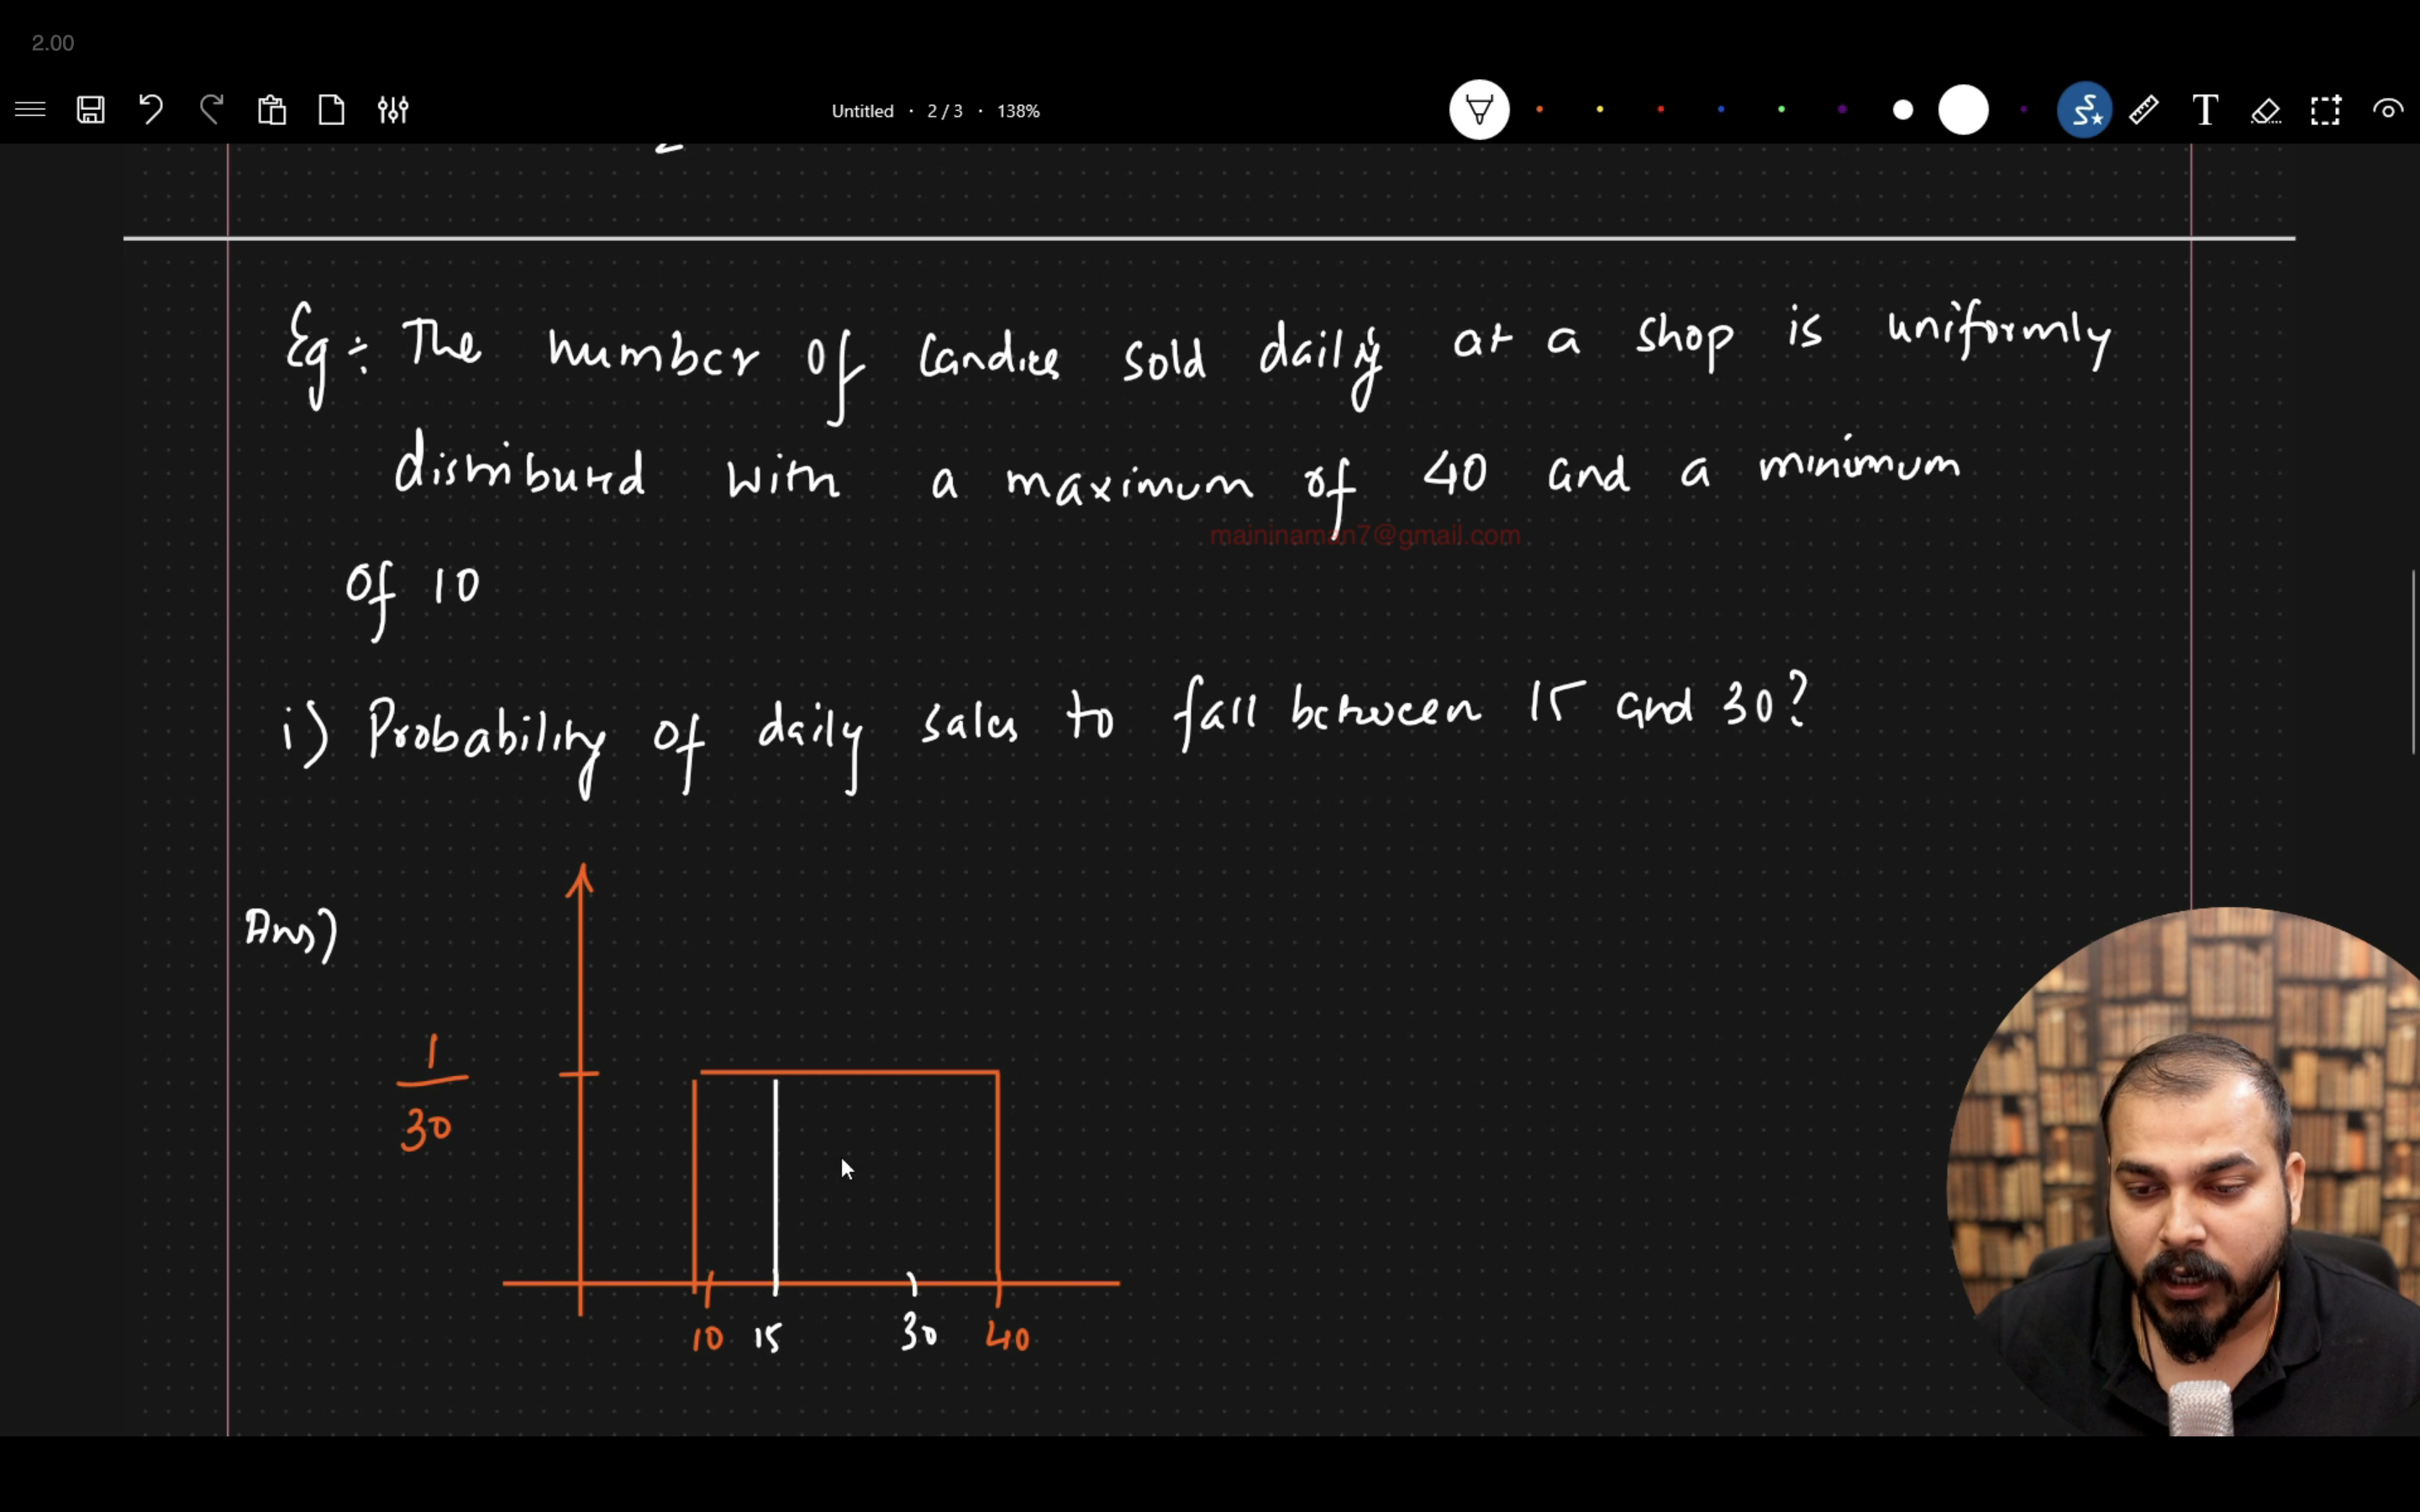 2.00
Untitled · 2 / 3 · 138%
Eg ÷ The number of candies sold daily at a shop is uniformly
distributed with a maximum of 40 and a minimum
maininaman7@gmail.com
of 10
i) Probability of daily sales to fall between 15 and 30?
Ans)
1
30
10 15 30 40